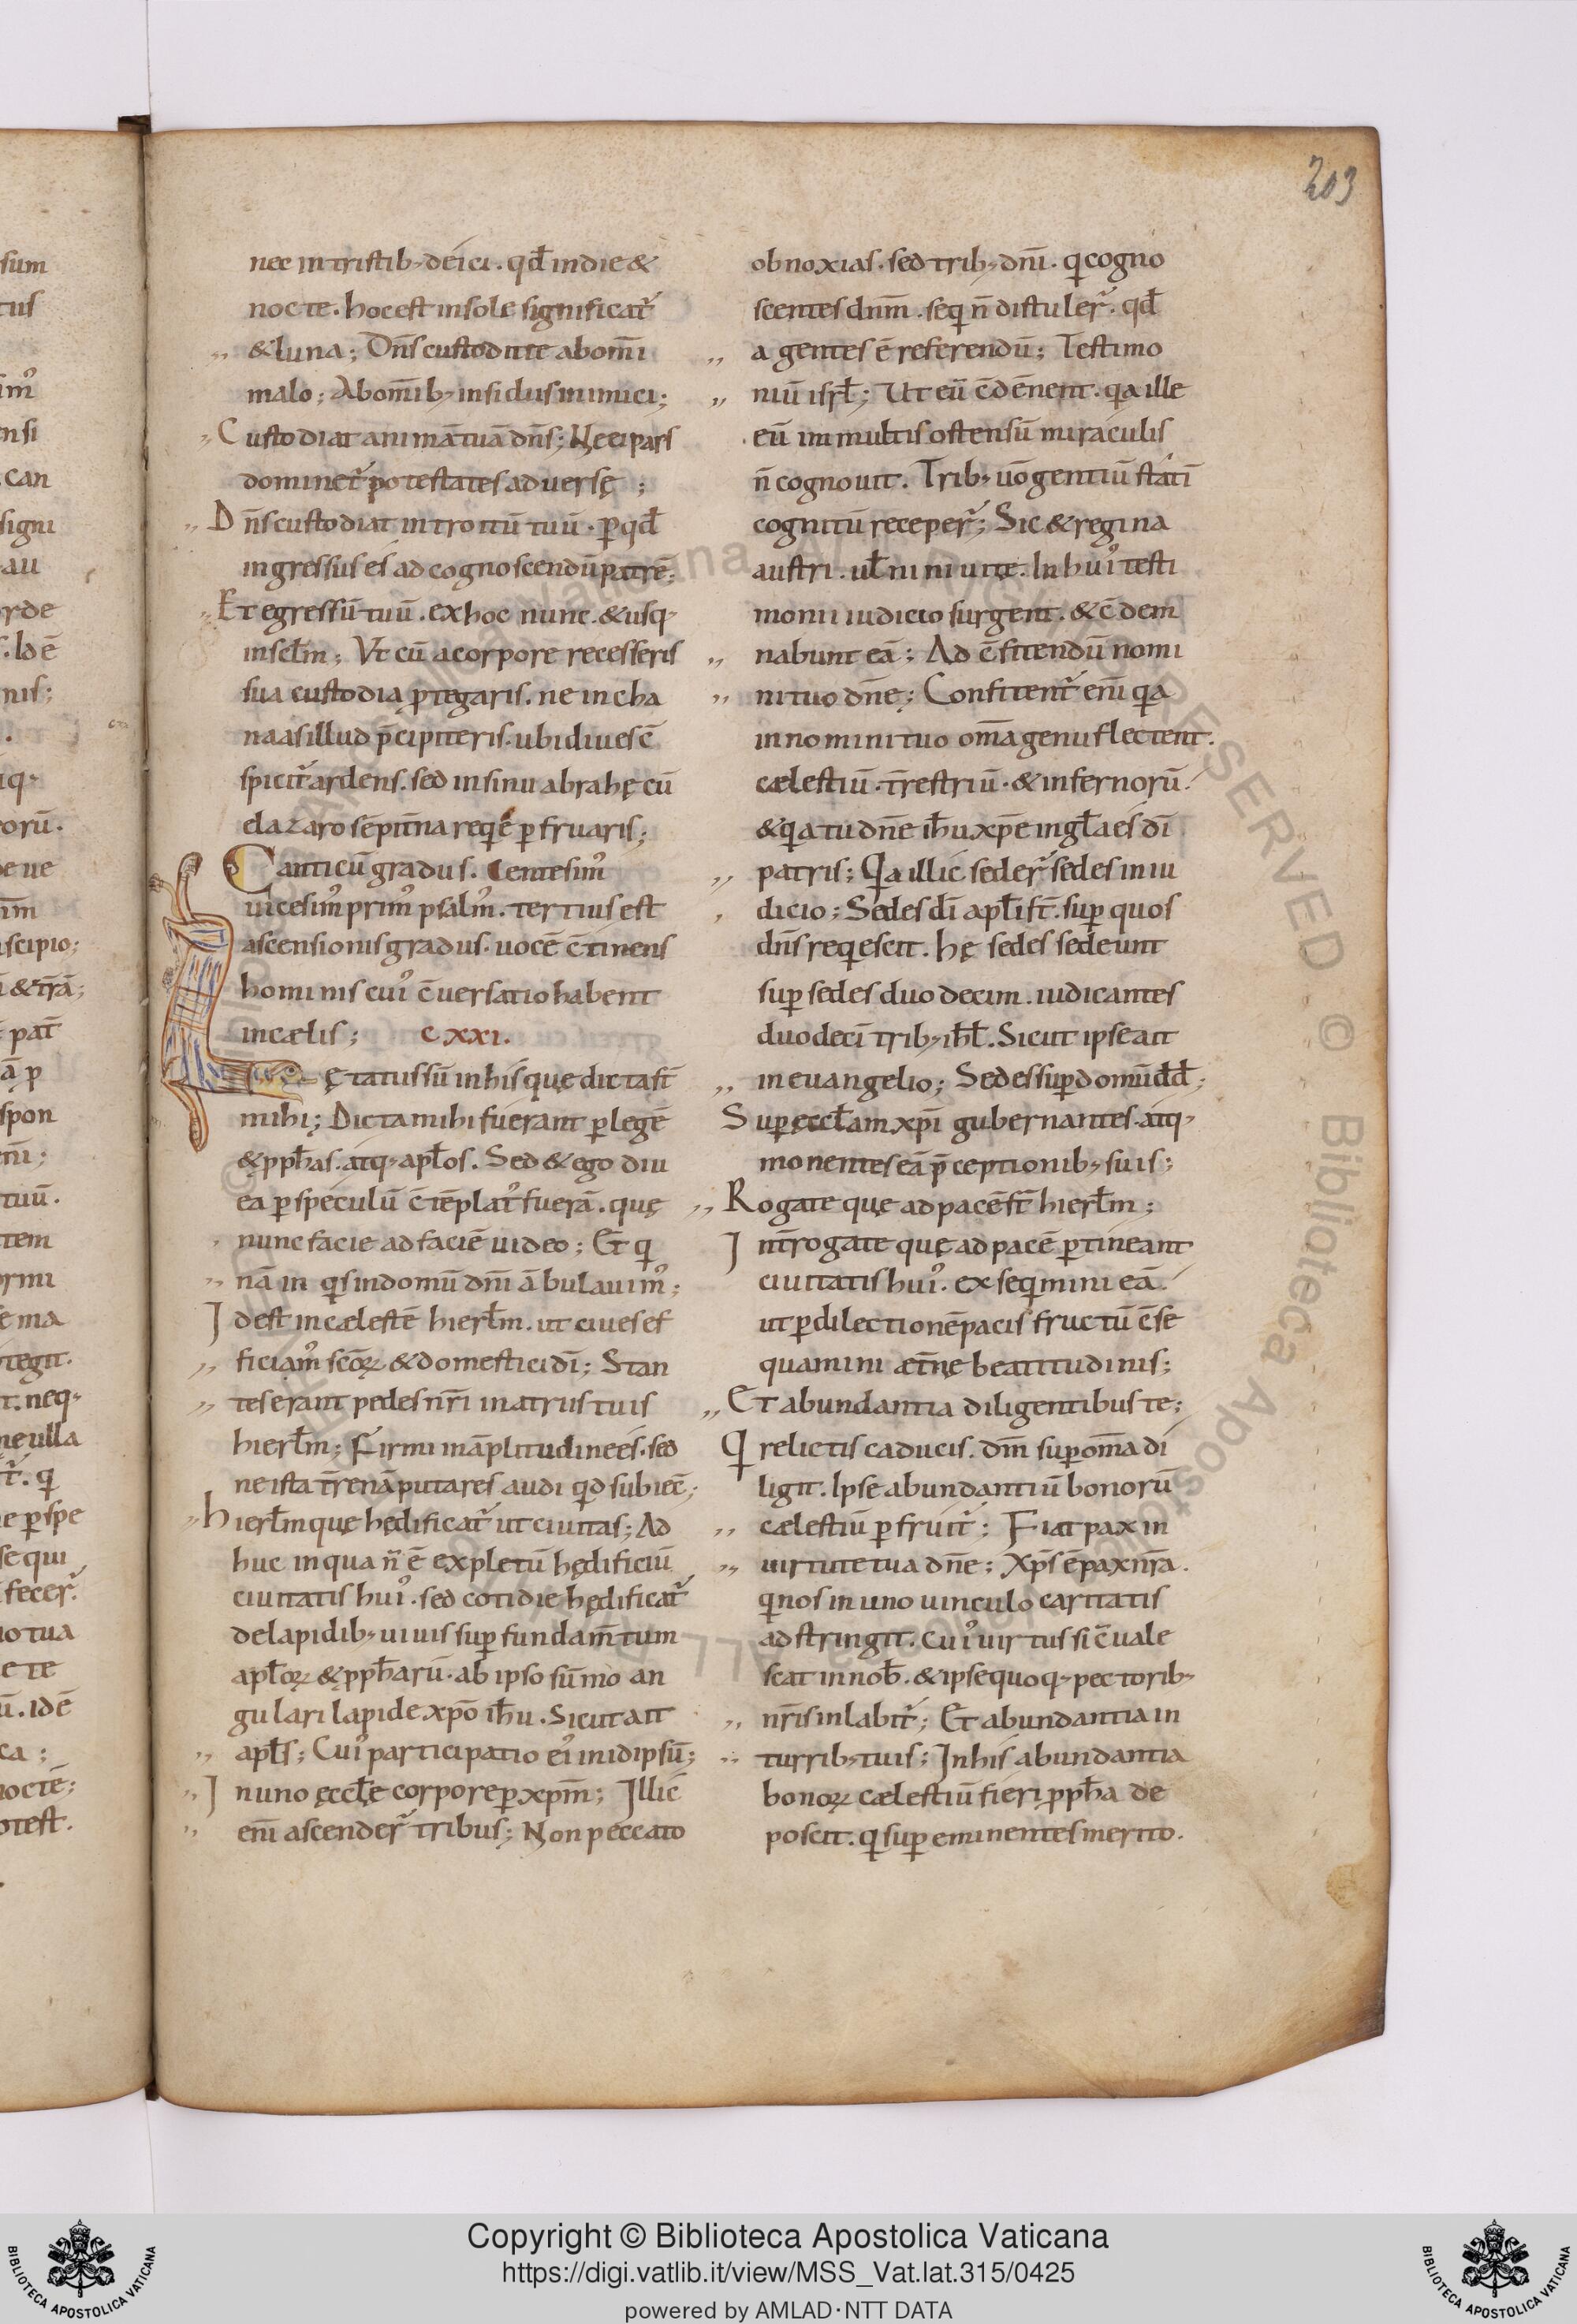 203
nec intristib; deici. qđ indie &
nocte. hocest insole significat᷑
&luna; Dn̄s custodit te abom̄i
malo; Abom̄ib; insidiis inimici;
Custodiat animā tuā dn̄s; Ne ei pars
dominet᷑ potestates aduersę;
Dn̄s custodiat introitū tuū. ꝑ qđ
ingressus es ad cognoscendū patrē;
Et egressū tuū. exhoc nunc. & usq;
inscl̄m; Vt cū acorpore recesseris
sua custodia ꝓtegaris. ne incha
naas illud p̄cipiteris. ubi diues c̄
spicit᷑ ardens. sed insinu abrahę cū
elazaro sēpit̄na reqē ꝑfruaris;
Canticū gradus. Centesim᷒
uicesim᷒ prim᷒ psalm᷒. tertius est
ascensionis gradus. uocē c̄tinens
hominis cui᷒ c̄uersatio habent
incælis; CXXI.
Lętatus sū inhis que dictas̄t
mihi; Dicta mihi fuerant ꝑ legē
& ꝓph̄as. atq; apl̄os. Sed & ego diu
ea ꝑ speculū c̄tēplat᷒ fuerā. quę
nunc facie ad faciē uideo; Et q
nā in qs indomū dn̄i ābulauim᷒;
Idest incælestē hierl̄m. ut ciues ef
ficiam᷒ scōꝝ & domestici dī; Stan
tes erant pedes nr̄i inatriis tuis
hierl̄m; Firmi in āplitudine es. sed
ne ista t̄renā putares audi qd subiec̄;
hierl̄m quę hędificat᷑ ut ciuitas; Ad
huc inqua n̄ ē expletū hędificiū
ciuitatis hui᷒. sed cotidie hędificat᷑
delapidib; uiuis suꝑ fundam̄tum
apl̄oꝝ & ꝓph̄arū. ab ipso sūmo an
gulari lapide xp̄o ih̄u. Sicut ait
apl̄s; Cui᷒ participatio ei᷒ inidipsū;
In uno ęccl̄ę corpore ꝑ xp̄m; Illic
eni᷒ ascender᷑ tribus; Non peccato
obnoxias. sed trib; dn̄i. q cogno
scentes dn̄m. seq n̄ distuler᷑. qđ
a gentes ē referendū; Testimo
niū isrl̄; Ut eū c̄dēnent. qa ille
eū in multis ostensū miraculis
n̄ cognouit. Trib; uō gentiū statī
cognitū receper᷑; Sic & regina
austri. ul̄ niniuitę. In hui᷒ testi
monii iudicio surgent. & c̄dem
nabunt eā; Ad c̄fitendū nomi
ni tuo dn̄e; Confitent᷑ eni᷒ qa
in nomini tuo om̄a genu flectent.
cælestiū. t̄restriū. & infernorū.
& qa tu dn̄e ih̄u xp̄e ingl̄a es dī
patris; Qa illic seder᷑ sedes in iu
dicio; Sedes dī apl̄i st̄. suꝑ quos
dn̄s reqescit. hę sedes sedeunt
suꝑ sedes duodecim. iudicantes
duodecī trib; ihl̄. Sicut ipse ait
in euangelio; Sedes suꝑ domū dđ;
Suꝑ ęccl̄am xp̄i gubernantes. atq;
monentes eā p̄ceptionib; suis;
Rogate quę ad pacē st̄ hierl̄m;
Int̄rogate quę ad pacē ꝑtineant
ciuitatis hui᷒. exseqmini eā.
ut ꝑ dilectionē pacis fructū c̄se
quamini æt̄nę beatitudinis;
Et abundantia diligentibus te;
Q relictis caducis. dm̄ suꝑ om̄a di
ligit. Ipse abundantiū bonorū
cælestiū ꝑfruit᷑; Fiat pax in
uirtute tua dn̄e; Xp̄s ē pax nr̄a.
q nos in uno uinculo caritatis
adstringit. cui᷒ uirtus si c̄uale
scat in nob̄. & ipse quoq; pectorib;
nr̄is inlabit᷑; Et abundantia in
turrib; tuis; Inhis abundantia
bonoꝝ cælestiū fieri ꝓph̄a de
poscit. q suꝑ eminentes merito.
Copyright © Biblioteca Apostolica Vaticana
https://digi.vatlib.it/view/MSS_Vat.lat.315/0425
powered by AMLAD·NTT DATA
BIBLIOTECA APOSTOLICA VATICANA
BIBLIOTECA APOSTOLICA VATICANA